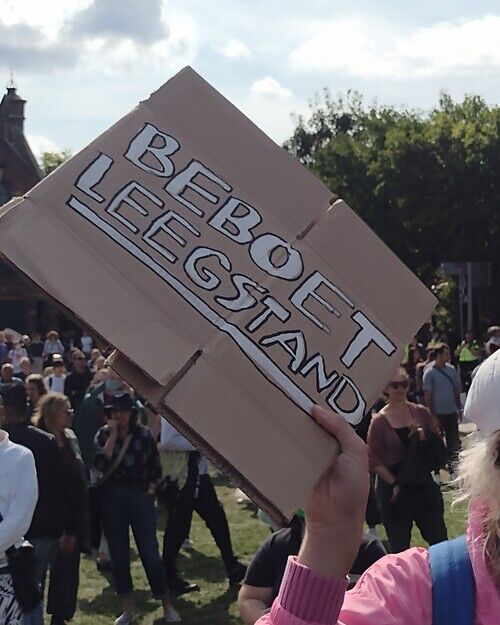 BEBOET
LEEGSTAND